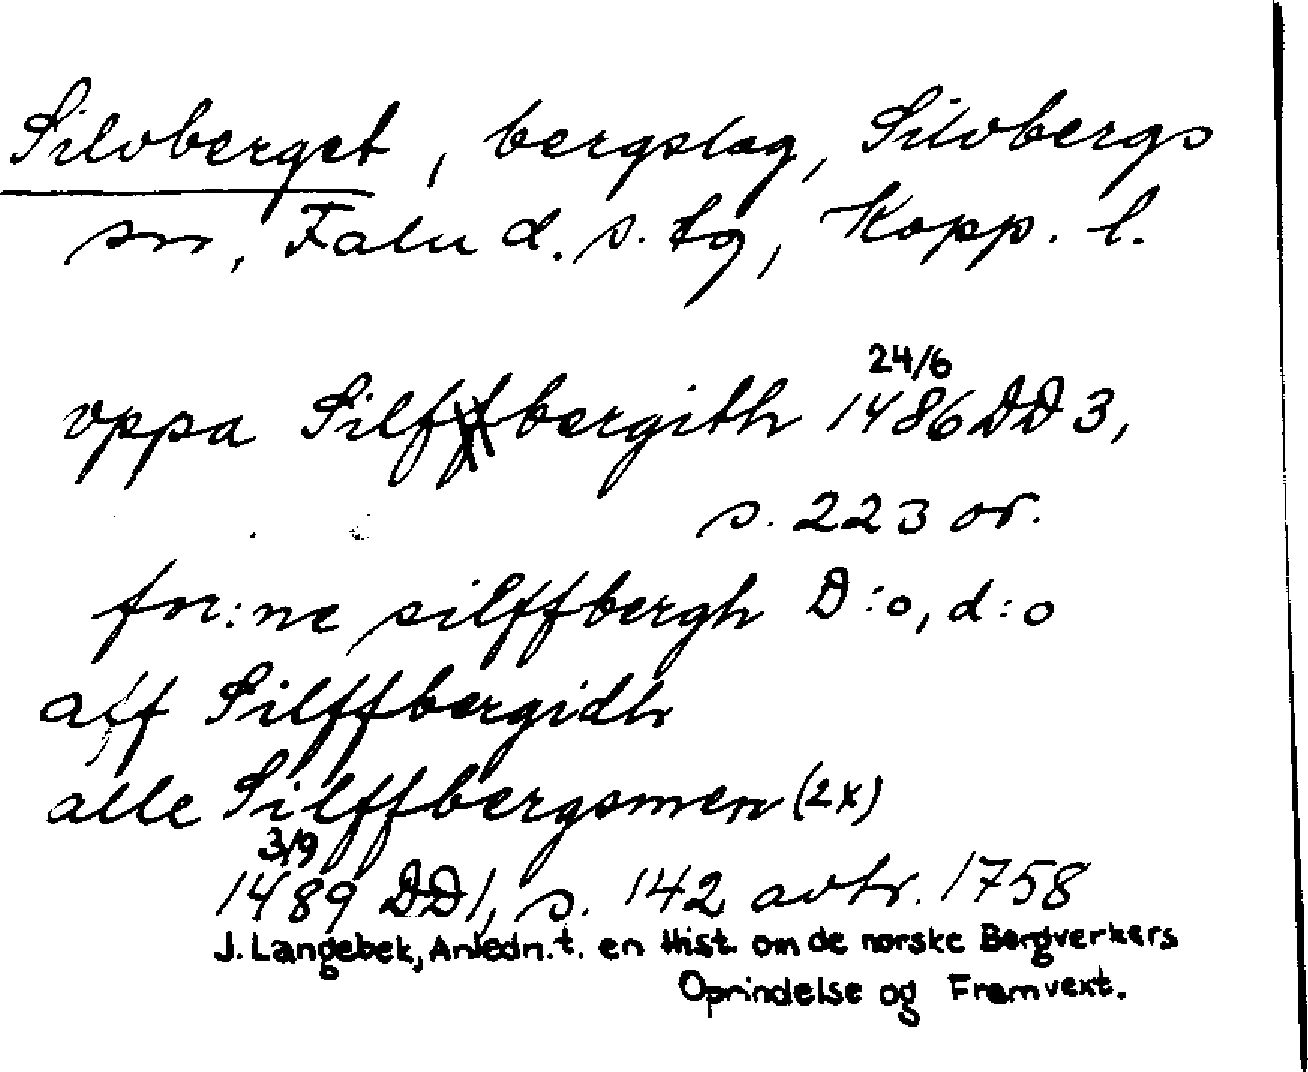 Silvberget, bergslag, Silvbergs
sn, Falu d.s. tg, Kopp. l.
24/6
vppa Silfbergith 1486 DD 3,
s. 223 or.
for:ne silffbergh D:o, d:o
aff Silffbergidh
alle Silffbergsmen (2x)
3/9
1489 DD1, s. 142 avtr. 1758
J. Langebek, Anledn. t. en Hist. om de norske Bergverkers
Oprindelse og Fremvext.